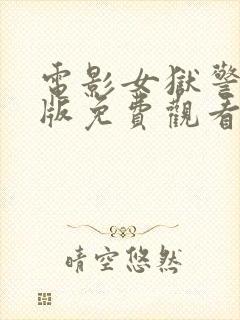 電影女獄警
版免費觀看
晴空悠然